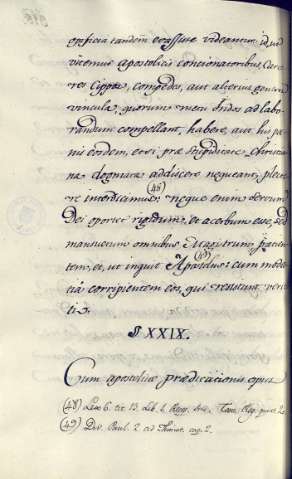 officia tandem evasisse videantur, id
vicimus Apostolicis concionatoribus, Carce
res, Cippos, compedes, aut alterius generis
vincula, quorum metu Indos ad labo
randum compellant, habere, aut his pæ
nis eosdem, etsi præ stupiditate Christia
na dogmata addiscere nequeant, plecte
re interdicamus: (48) neque enim servum
Dei oportet rigidum, et acerbum esse, sed
mansuetum omnibus Magistrum, patien
tem, et, ut inquit Apostolus: (49) cum modes
tia corripientem eos, qui resistunt verita
ti.
§ XXIX.
Cum apostolicæ prædicationis opus
(48) Lex 6. tit. 13. Lib. 1. Recop.
(49) Div. Paul. 2 ad Thimot. cap. 2.